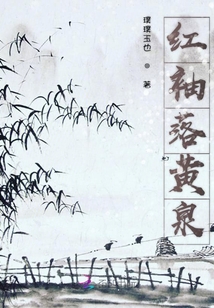 红袖落黄泉
璞璞玉也 著